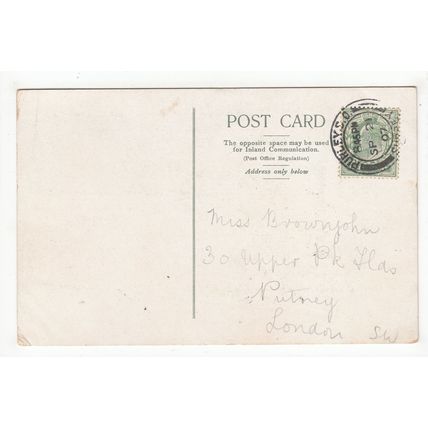 POST CARD
The opposite space may be used
for Inland Communication.
(Post Office Regulation)
Address only below
PURLEY S.O.
SURREY
8.45PM
SP 21
07
Miss Brownjohn
30 Upper Pk Flds
Putney
London SW